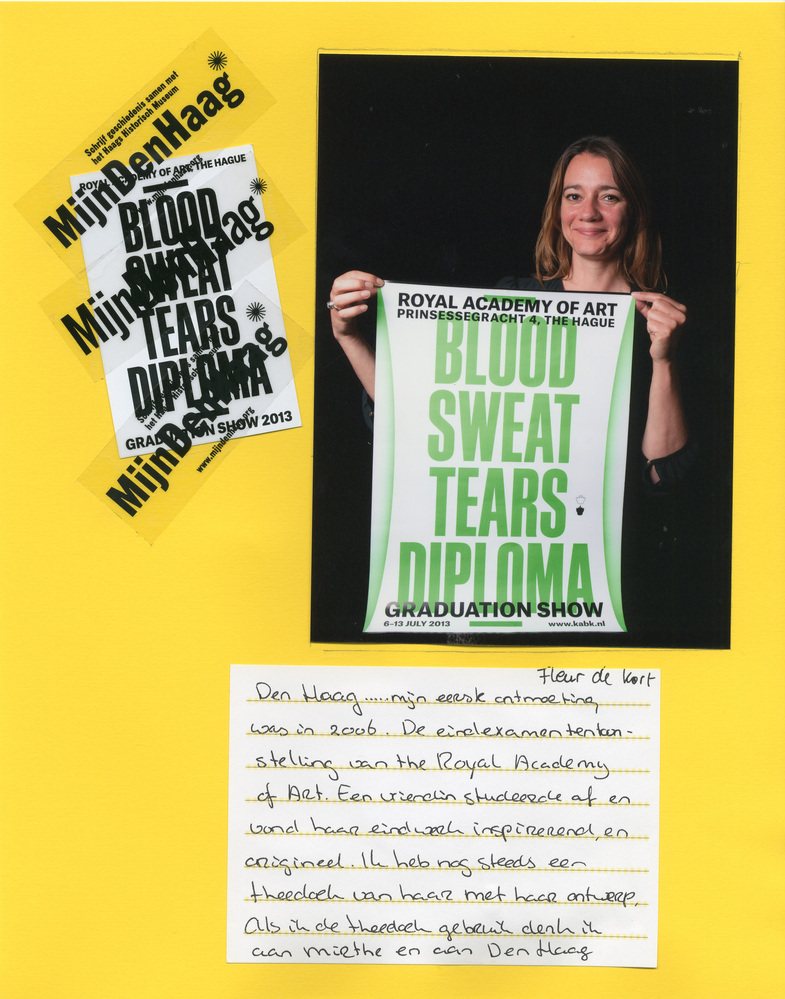 Schrijf geschiedenis samen met
het Haags Historisch Museum
MijnDenHaag
ROYAL ACADEMY OF ART, THE HAGUE
BLOOD
MijnDenHaag
SWEAT
TEARS
DIPLOMA
MijnDenHaag
GRADUATION SHOW 2013
www.mijndenhaag.org
ROYAL ACADEMY OF ART
PRINSESSEGRACHT 4, THE HAGUE
BLOOD
SWEAT
TEARS
DIPLOMA
GRADUATION SHOW
6-13 JULY 2013 www.kabk.nl
Fleur de Kort
Den Haag.....mijn eerste ontmoeting
was in 2006. De eindexamententoon-
stelling van the Royal Academy
of Art. Een vriendin studeerde af en
vond haar eindwerk inspirerend en
origineel. Ik heb nog steeds een
theedoek van haar met haar ontwerp.
Als ik de theedoek gebruik denk ik
aan Mirthe en aan Den Haag